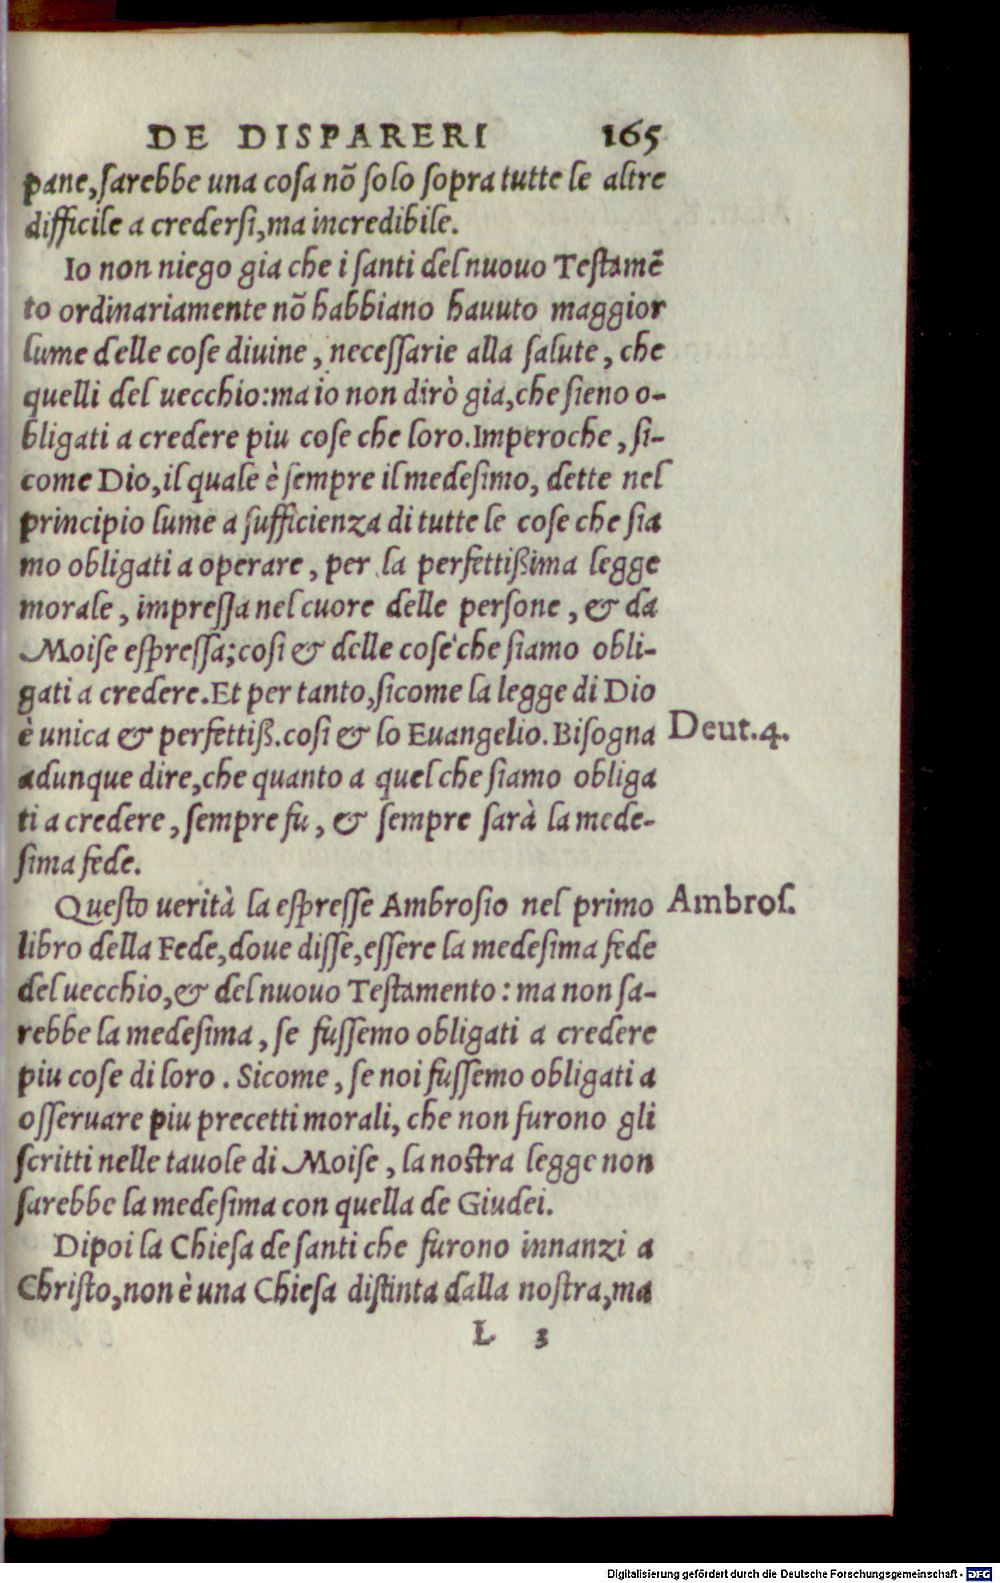 DE DISPARERI 165
pane,ſarebbe una coſa nõ ſolo ſopra tutte le altre
difficile a crederſi,ma incredibile.
Io non niego gia che i ſanti del nuouo Teſtamẽ
to ordinariamente nõ habbiano hauuto maggior
lume delle coſe diuine, neceſſarie alla ſalute, che
quelli del uecchio:ma io non dirò gia,che ſieno o-
bligati a credere piu coſe che loro.Imperoche, ſi-
come Dio,il quale è ſempre il medeſimo, dette nel
principio lume a ſufficienza di tutte le coſe che ſia
mo obligati a operare, per la perfettißima legge
morale, impreſſa nel cuore delle perſone, & da
Moiſe eſpreſſa;coſi & delle coſe che ſiamo obli-
gati a credere.Et per tanto,ſicome la legge di Dio
è unica & perfettiß.coſi & lo Euangelio.Biſogna
Deut.4.
adunque dire,che quanto a quel che ſiamo obliga
ti a credere, ſempre fu, & ſempre ſarà la mede-
ſima fede.
Queſto uerità la eſpreſſe Ambroſio nel primo
Ambroſ.
libro della Fede,doue diſſe,eſſere la medeſima fede
del uecchio,& del nuouo Teſtamento: ma non ſa-
rebbe la medeſima, ſe fuſſemo obligati a credere
piu coſe di loro. Sicome, ſe noi fuſſemo obligati a
oſſeruare piu precetti morali, che non furono gli
ſcritti nelle tauole di Moiſe, la noſtra legge non
ſarebbe la medeſima con quella de Giudei.
Dipoi la Chieſa de ſanti che furono innanzi a
Chriſto,non è una Chieſa diſtinta dalla noſtra,ma
L 3
Digitalisierung gefördert durch die Deutsche Forschungsgemeinschaft - DFG